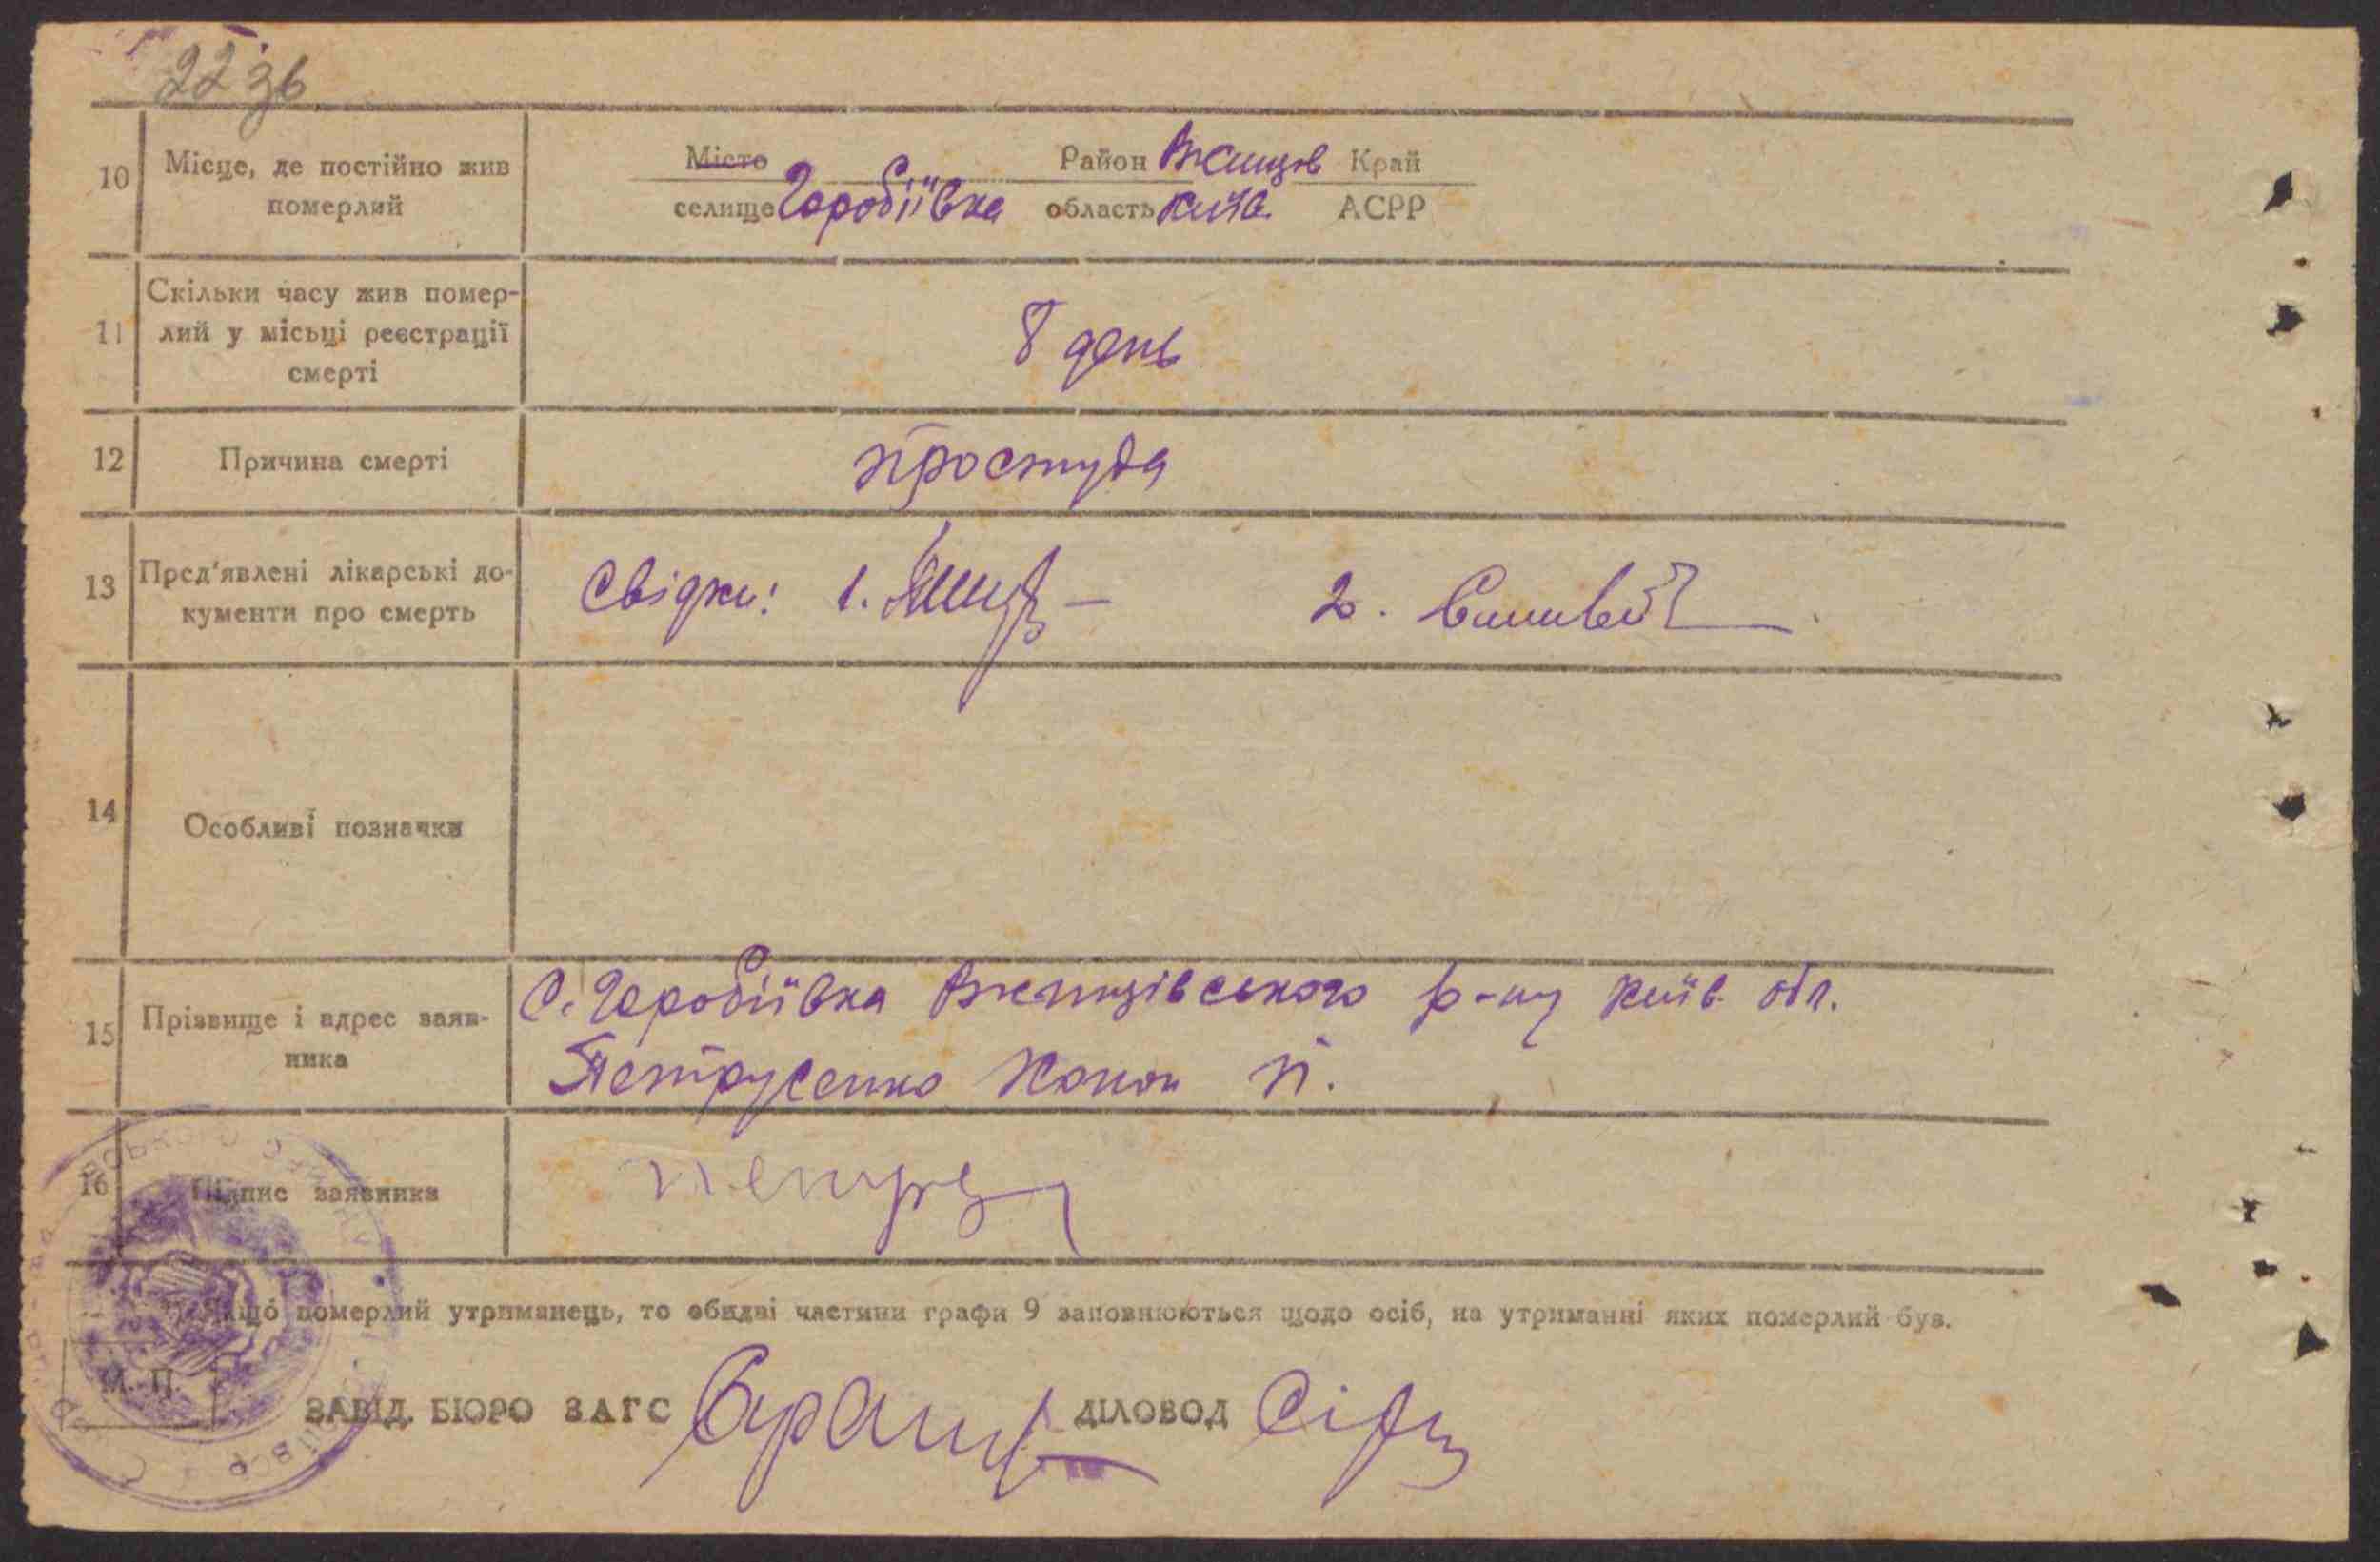 22 зв
10 Місце, де постійно жив померлий
Місто Район Ржищів Край
селище Горобіївка область Київ. АСРР
11 Скільки часу жив помер-
лий у місьці реєстрації
смерті
8 день
12 Причина смерті простуда
13 Пред'явлені лікарські до-
кументи про смерть
Свідки: 1. 2.
14 Особливі позначки
15 Прізвище і адрес заяв-
ника
С. Горобіївка Ржищівського р-ну Київ. обл.
Петрусенко Конон П.
16 Підпис заявника
Якщо померлий утриманець, то обидві частини графи 9 заповнюються щодо осіб, на утриманні яких померлий був.
М. П.
ЗАВІД. БЮРО ЗАГС ДІЛОВОД